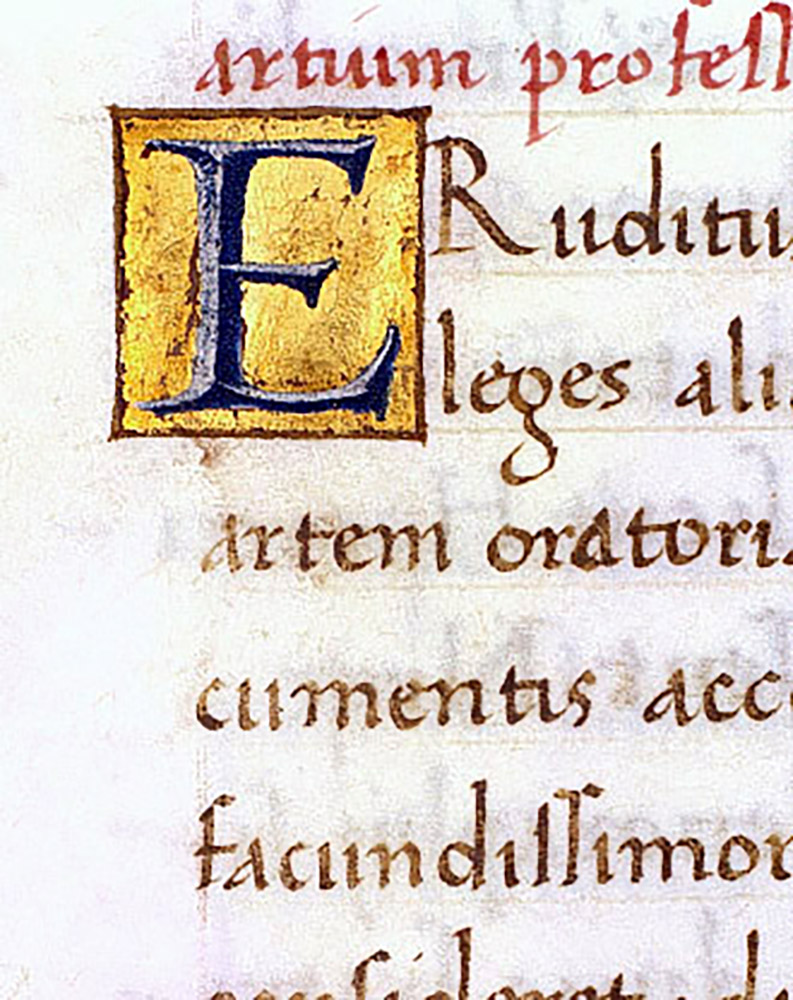 artium profess
ERuditu
leges ali
artem oratori
cumentis acc
facundissimor